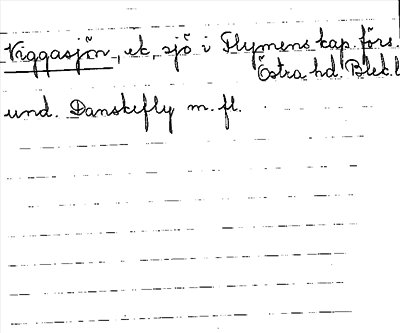 Viggasjön, ek, sjö i Flymens kap. förs.
Östra hd. Blek. l
und. Danskefly m. fl.